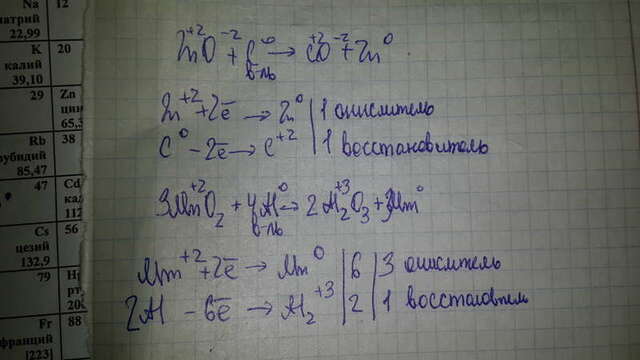 Na 12
натрий
22,99
K 20
калий
39,10
29 Zn
цин
65,3
Rb 38
рубидий
85,47
47 Cd
кад
112
Cs 56
цезий
132,9
79 Hg
рт
200
Fr 88
франций
[223]
Zn⁺²O⁻² + C⁰ → C⁺²O⁻² + Zn⁰
в-ль
Zn⁺² + 2ē → Zn⁰ | 1 окислитель
C⁰ - 2ē → C⁺² | 1 восстановитель
3Mn⁺²O₂ + 4Al⁰ → 2Al₂⁺³O₃ + 3Mn⁰
в-ль
Mn⁺² + 2ē → Mn⁰ | 6 | 3 окислитель
2Al - 6ē → Al₂⁺³ | 2 | 1 восстановитель